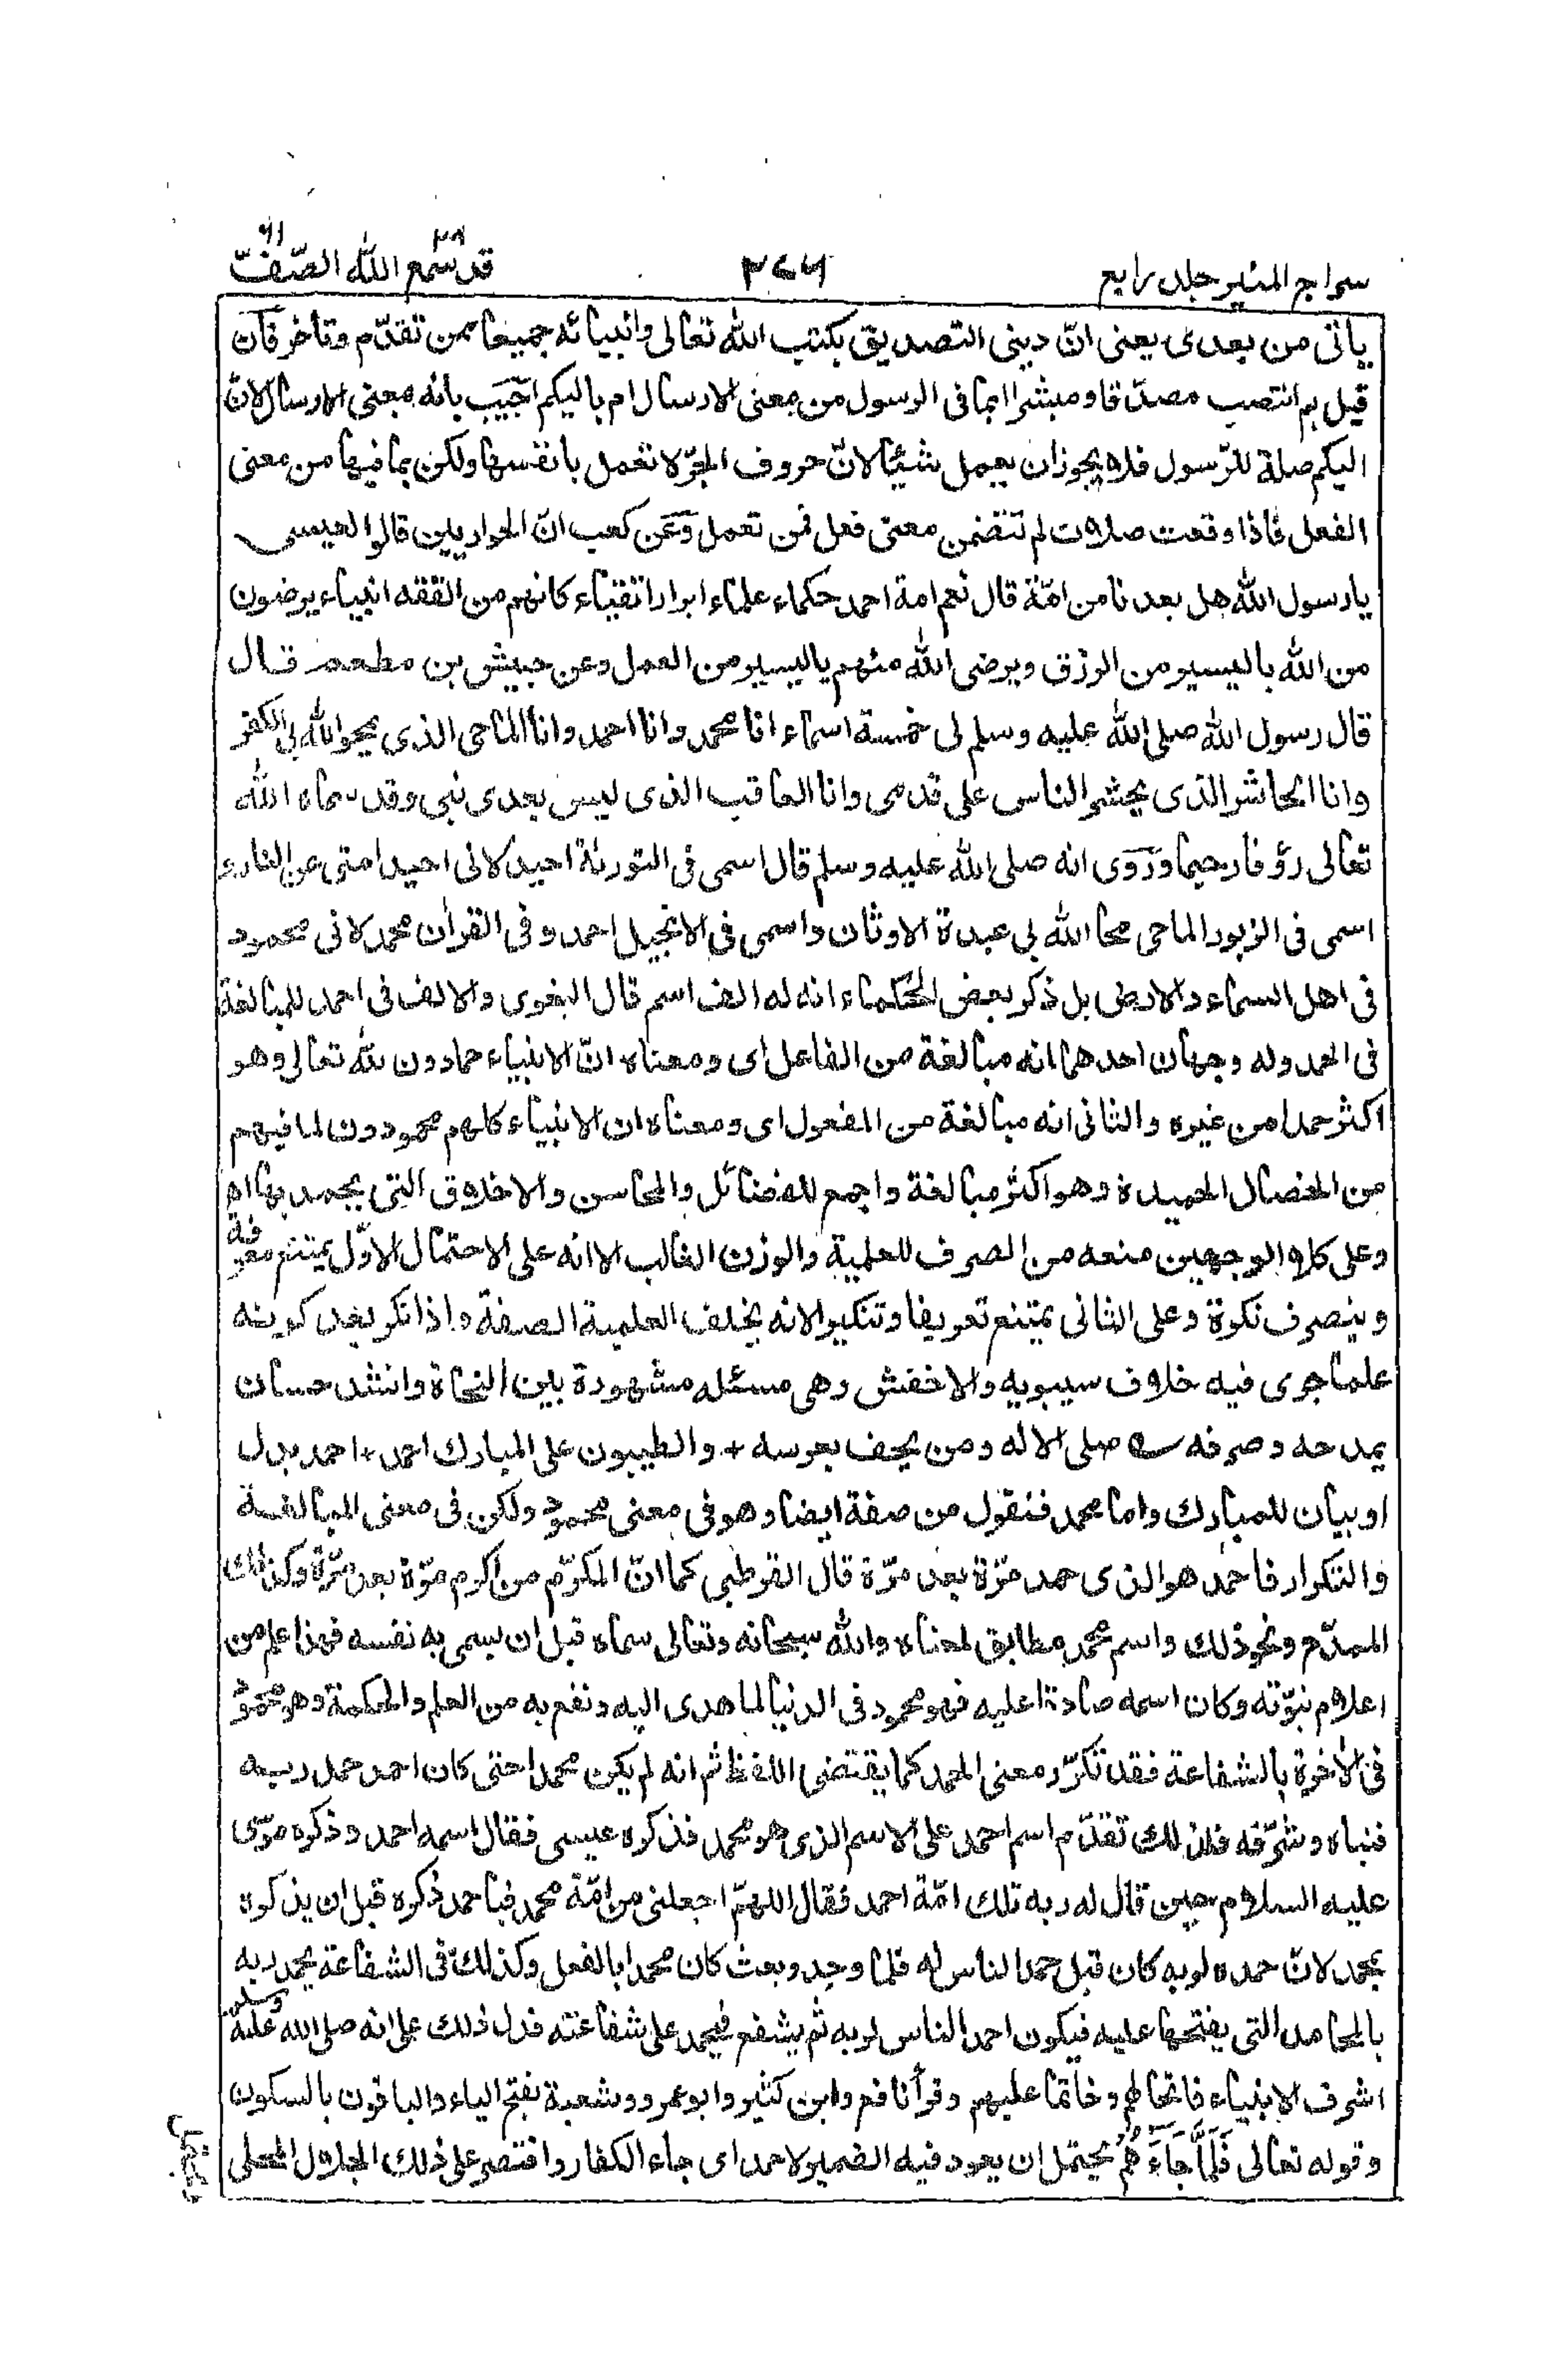 سراج المنير جلد رابع
٢٧٦
قد سمع الله ٢٨ الصّفّ ٦١
ياتى من بعدى يعنى انّ دينى التصديق بكتب الله تعالى وانبيائه جميعا ممن تقدّم وتاخر فان
قيل بم انتصب مصدّقا ومبشرا ابما فى الرسول من معنى الارسال ام باليكم اجيب بانه بمعنى الارسال لانّ
اليكم صلة للرّسول فلا يجوز ان يعمل شيئا لانّ حروف الجرّ لا تعمل بانفسها ولكن بما فيها من معنى
الفعل فاذا وقعت صلات لم تتضمن معنى فعل فمن تعمل وَعَن كعب انّ الحواريين قالوا لعيسى
يا رسول الله هل بعدنا من امّة قال نعم امة احمد حكماء علماء ابرار اتقياء كانهم من الفقه انبياء يرضون
من الله باليسير من الرزق ويرضى الله منهم باليسير من العمل وعن حبيش بن مطعم قال
قال رسول الله صلى الله عليه وسلم لى خمسة اسماء انا محمد وانا احمد وانا الماحى الذى يمحو الله بى الكفر
وانا الحاشر الذى يحشر الناس على قدمى وانا العاقب الذى ليس بعدى نبى وقد سماه الله
تعالى رؤفا رحيما وَرَوى انه صلى الله عليه وسلم قال اسمى فى التورىة احيد لانى احيد امتى عن النار و
اسمى فى الزبور الماحى محا الله بى عبدة الاوثان واسمى فى الانجيل احمد وفى القرأن محمد لانى محمود
فى اهل السماء والارض بل ذكر بعض الحكماء انه له الف اسم قال البغوى والالف فى احمد للمبالغة
فى الحمد وله وجهان احدهما انه مبالغة من الفاعل اى ومعناه انّ الانبياء حمادون لله تعالى وهو
اكثر حمدا من غيره والثانى انه مبالغة من المفعول اى ومعناه ان الانبياء كلهم محمودون لما فيهم
من الخصال الحميدة وهو اكثر مبالغة واجمع للفضائل والمحاسن والاخلاق التى يحمد بها اه
وعلى كلا الوجهين منعه من الصرف للعلمية والوزن الغالب الا انه على الاحتمال الاوّل يمتنع معرفة
وينصرف نكرة وعلى الثانى يمتنع تعريفا وتنكيرا لانه يخلف العلمية الصفة واذا نكر بعد كونه
علما جرى فيه خلاف سيبويه والاخفش وهى مسئله مشهورة بين النحاة وانشد حسان
يمدحه وصرفه ؎ صلى الاله ومن يحف بعرسه + والطيبون على المبارك احمد + احمد بدل
او بيان للمبارك واما محمد فنقول من صفة ايضا وهو فى معنى محمود ولكن فى معنى المبالغة
والتكرار فاحمد هو الذى حمد مرّة بعد مرّة قال القرطبى كما انّ المكرّم من اكرم مرّة بعد مرّة وكذلك
الممدّح ونحو ذلك واسم محمد مطابق لمعناه والله سبحانه وتعالى سماه قبل ان يسمى به نفسه فهذا علم من
اعلام نبوّته وكان اسمه صادقا عليه فهو محمود فى الدنيا لما هدى اليه ونفع به من العلم والحكمة وهو محمود
فى الأخرة بالشفاعة فقد تكرّر معنى الحمد كما يقتضى اللفظ ثم انه لم يكن محمدا حتى كان احمد حمد ربه
فنباه وشرّفه فلذلك تقدّم اسم احمد على الاسم الذى هو محمد فذكره عيسى فقال اسمه احمد وذكره موسى
عليه السلام حين قال له ربه تلك امّة احمد فقال اللهمّ اجعلنى من امّة محمد فباحمد ذكره قبل ان يذكره
بمحمد لانّ حمده لربه كان قبل حمد الناس له فلما وجد وبعث كان محمدا بالفعل وكذلك فى الشفاعة يحمد ربه
بالمحامد التى يفتحها عليه فيكون احمد الناس لربه ثم يشفع فيحمد على شفاعته فدل ذلك على انه صلى الله عليه وسلم
اشرف الانبياء فاتحا لهم وخاتما عليهم وقرأ نافع وابن كثير وابو عمرو وشعبة بفتح الياء والباقون بالسكون
وقوله تعالى فَلَمَّا جَآءَهُمْ يحتمل ان يعود فيه الضمير لاحمد اى جاء الكفار واقتصر على ذلك الجلال المحلى